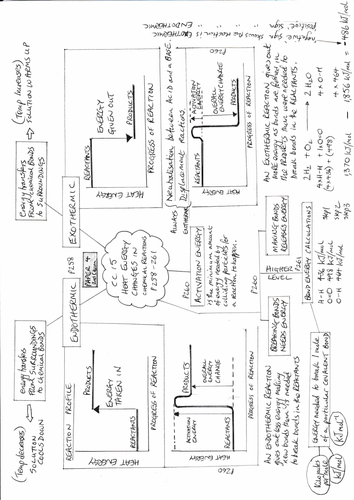 CC15
HEAT ENERGY
CHANGES IN
CHEMICAL REACTIONS
P258-261
P258
PAPER 4
EXOTHERMIC
Energy transfers
FROM chemical bonds
to surroundings
(Temp increases)
SOLUTION WARMS UP
HEAT ENERGY
REACTANTS
ENERGY
GIVEN OUT
PRODUCTS
PROGRESS OF REACTION
ALWAYS
EXOTHERMIC
Neutralisation between Acid and a BASE
Displacement reactions.
P260
HEAT ENERGY
REACTANTS
ACTIVATION
ENERGY
OVERALL
ENERGY CHANGE
PRODUCTS
PROGRESS OF REACTION
AN EXOTHERMIC REACTION gives out
more energy as bonds are formed in
the products than were needed to
break bonds in the REACTANTS.
P260
ACTIVATION ENERGY
is the minimum amount
of energy needed by
colliding particles for
a reaction to happen.
ENDOTHERMIC
Energy transfers
FROM surroundings
to chemical bonds
(Temp decreases)
SOLUTION
COOLS DOWN
REACTION PROFILE
HEAT ENERGY
REACTANTS
PRODUCTS
ENERGY
TAKEN IN
PROGRESS OF REACTION
P260
HEAT ENERGY
REACTANTS
ACTIVATION
ENERGY
PRODUCTS
OVERALL
ENERGY
CHANGE
PROGRESS OF REACTION
AN ENDOTHERMIC REACTION
gives out less energy making
new bonds than is needed
to break bonds in the reactants.
P260
MAKING BONDS
RELEASES ENERGY
BREAKING BONDS
NEEDS ENERGY
HIGHER
BOND ENERGY CALCULATIONS
Energy needed to break 1 mole
of a particular COVALENT BOND
Kilojoules
per mole
(kJ/mol)
(kJ mol⁻¹)
H-H 436 kJ/mol
O=O 498 kJ/mol
O-H 464 kJ/mol
step 1
step 2
step 3
2H₂ + O₂ → 2H₂O
2 x H-H + 1 x O=O
4 x O-H
(2 x 436) + (498)
4 x 464
1370 kJ/mol - 1856 kJ/mol = -486 kJ/mol
negative sign shows the reaction is EXOTHERMIC
positive sign " " " " ENDOTHERMIC